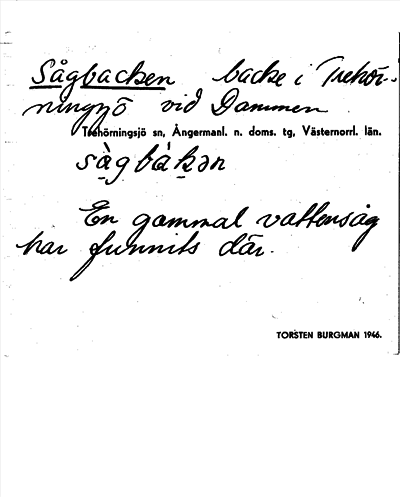 Sågbacken backe i Trehör-
ningsjö vid Dammen
Trehörningsjö sn, Ångermanl. n. doms. tg, Västernorrl. län.
sὰg bàk̠ən
En gammal vattensåg
har funnits där.
TORSTEN BURGMAN 1946.